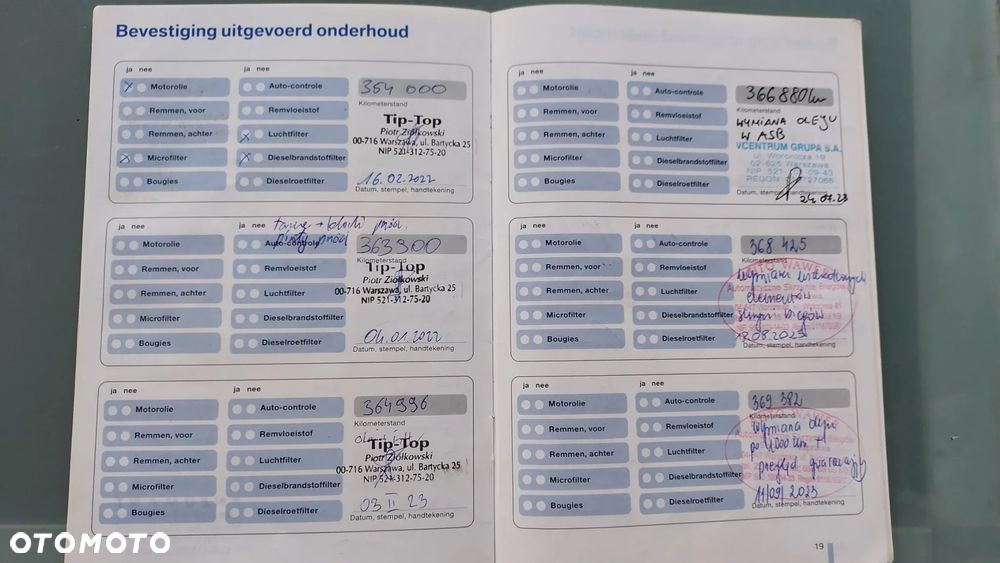 Bevestiging uitgevoerd onderhoud
ja nee ja nee
Motorolie Auto-controle 354 000
Kilometerstand
Remmen, voor Remvloeistof Tip-Top
Piotr Ziółkowski
Remmen, achter Luchtfilter 00-716 Warszawa, ul. Bartycka 25
NIP 521-312-75-20
Microfilter Dieselbrandstoffilter
Bougies Dieselroetfilter 16.02.2022
Datum, stempel, handtekening
ja nee ja nee
Motorolie Auto-controle 363900
Kilometerstand
Remmen, voor Remvloeistof Tip-Top
Piotr Ziółkowski
Remmen, achter Luchtfilter 00-716 Warszawa, ul. Bartycka 25
NIP 521-312-75-20
Microfilter Dieselbrandstoffilter
Bougies Dieselroetfilter 04.01.2022
Datum, stempel, handtekening
ja nee ja nee
Motorolie Auto-controle 364996
Kilometerstand
Remmen, voor Remvloeistof Tip-Top
Piotr Ziółkowski
Remmen, achter Luchtfilter 00-716 Warszawa, ul. Bartycka 25
NIP 521-312-75-20
Microfilter Dieselbrandstoffilter
Bougies Dieselroetfilter 03 II 23
Datum, stempel, handtekening
ja nee ja nee
Motorolie Auto-controle 366880km
Kilometerstand
Remmen, voor Remvloeistof WYMIANA OLEJU
W ASB
Remmen, achter Luchtfilter VCENTRUM GRUPA S.A.
ul. Woronicza 19
Microfilter Dieselbrandstoffilter 02-625 Warszawa
Bougies Dieselroetfilter
Datum, stempel, handtekening
ja nee ja nee
Motorolie Auto-controle 368 425
Kilometerstand
Remmen, voor Remvloeistof wymiana
Automatyczne Skrzynie Biegów
Remmen, achter Luchtfilter elementów
Microfilter Dieselbrandstoffilter skrzyni biegów
Bougies Dieselroetfilter
Datum, stempel, handtekening
ja nee ja nee
Motorolie Auto-controle 369 382
Kilometerstand
Remmen, voor Remvloeistof wymiana oleju
Remmen, achter Luchtfilter po 1000 km +
Microfilter Dieselbrandstoffilter przegląd gwarancyjny
Bougies Dieselroetfilter 11/09/2023
Datum, stempel, handtekening
19
OTOMOTO